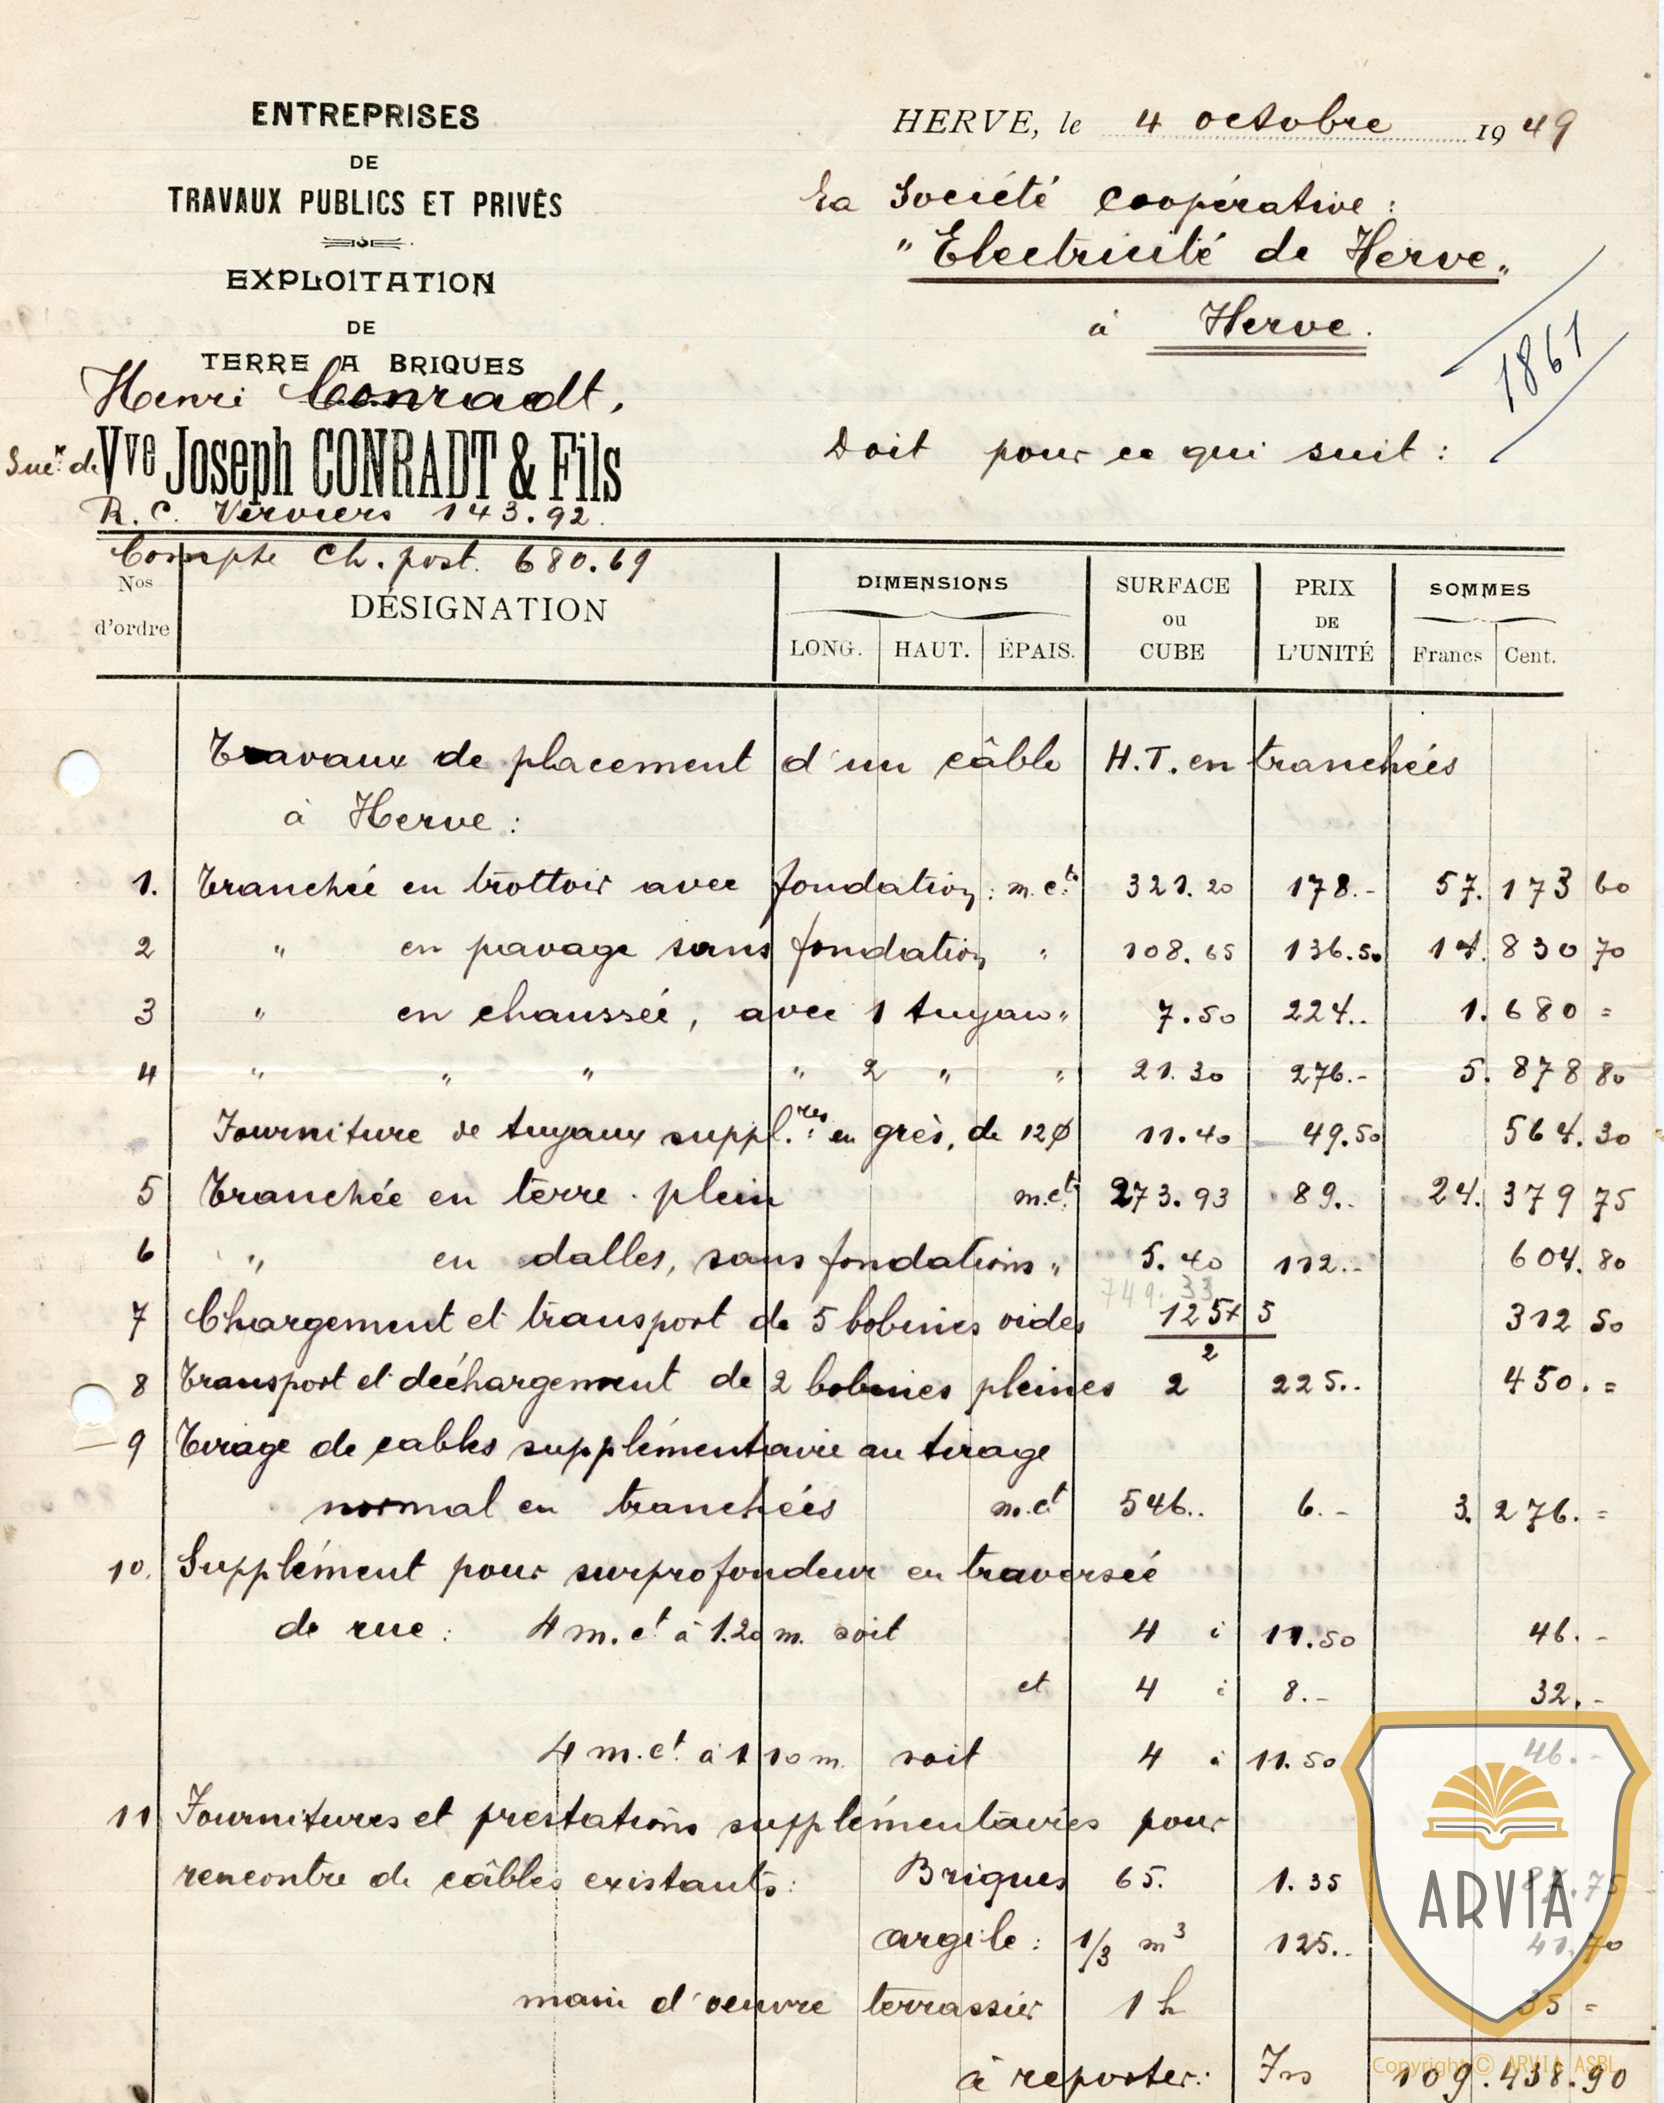 ENTREPRISES
DE
TRAVAUX PUBLICS ET PRIVÉS
EXPLOITATION
DE
TERRE A BRIQUES
Henri Conradt,
Sucr. de Vve Joseph CONRADT & Fils
R. C. Verviers 143.92.
Compte Ch. post. 680.69
HERVE, le 4 octobre 1949
La Société coopérative :
"Electricité de Herve"
à Herve.
1861
Doit pour ce qui suit :
Nos d'ordre DÉSIGNATION DIMENSIONS LONG. HAUT. ÉPAIS. SURFACE ou CUBE PRIX DE L'UNITÉ SOMMES Francs Cent.
Travaux de placement d'un câble H.T. en tranchées
à Herve :
1. Tranchée en trottoir avec fondation : m. ct. 321.20 178.- 57.173 60
2 " en pavage sans fondation " 108.65 136.50 14.830 70
3 " en chaussée, avec 1 tuyau " 7.50 224.. 1.680 =
4 " " " " 2 " " 21.30 276.- 5.878 80
Fourniture de tuyaux suppl.res en grès, de 12 ø 11.40 49.50 564.30
5 Tranchée en terre-plein m.ct 273.93 89.. 24.379 75
6 " en dalles, sans fondations " 5.40 112.- 604.80
749.33
7 Chargement et transport de 5 bobines vides 125 x 5 312 50
2
8 Transport et déchargement de 2 bobines pleines 2 225.. 450.=
9 Tirage de cables supplémentaire au tirage
normal en tranchées m.ct 546.. 6.- 3.276.=
10. Supplément pour surprofondeur en traversée
de rue : 4 m.ct à 1.20 m. soit 4 à 11.50 46.-
et 4 à 8.- 32.-
4 m.ct. à 1 10 m. soit 4 à 11.50 46.-
11 Fournitures et prestations supplémentaires pour
rencontre de câbles existants : Briques 65. 1.35 87.75
argile : 1/3 m3 125.. 41.70
main d'oeuvre terrassier 1 h 35 =
à reporter : Frs 109.438.90
ARVIA
Copyright © ARVIA ASBL